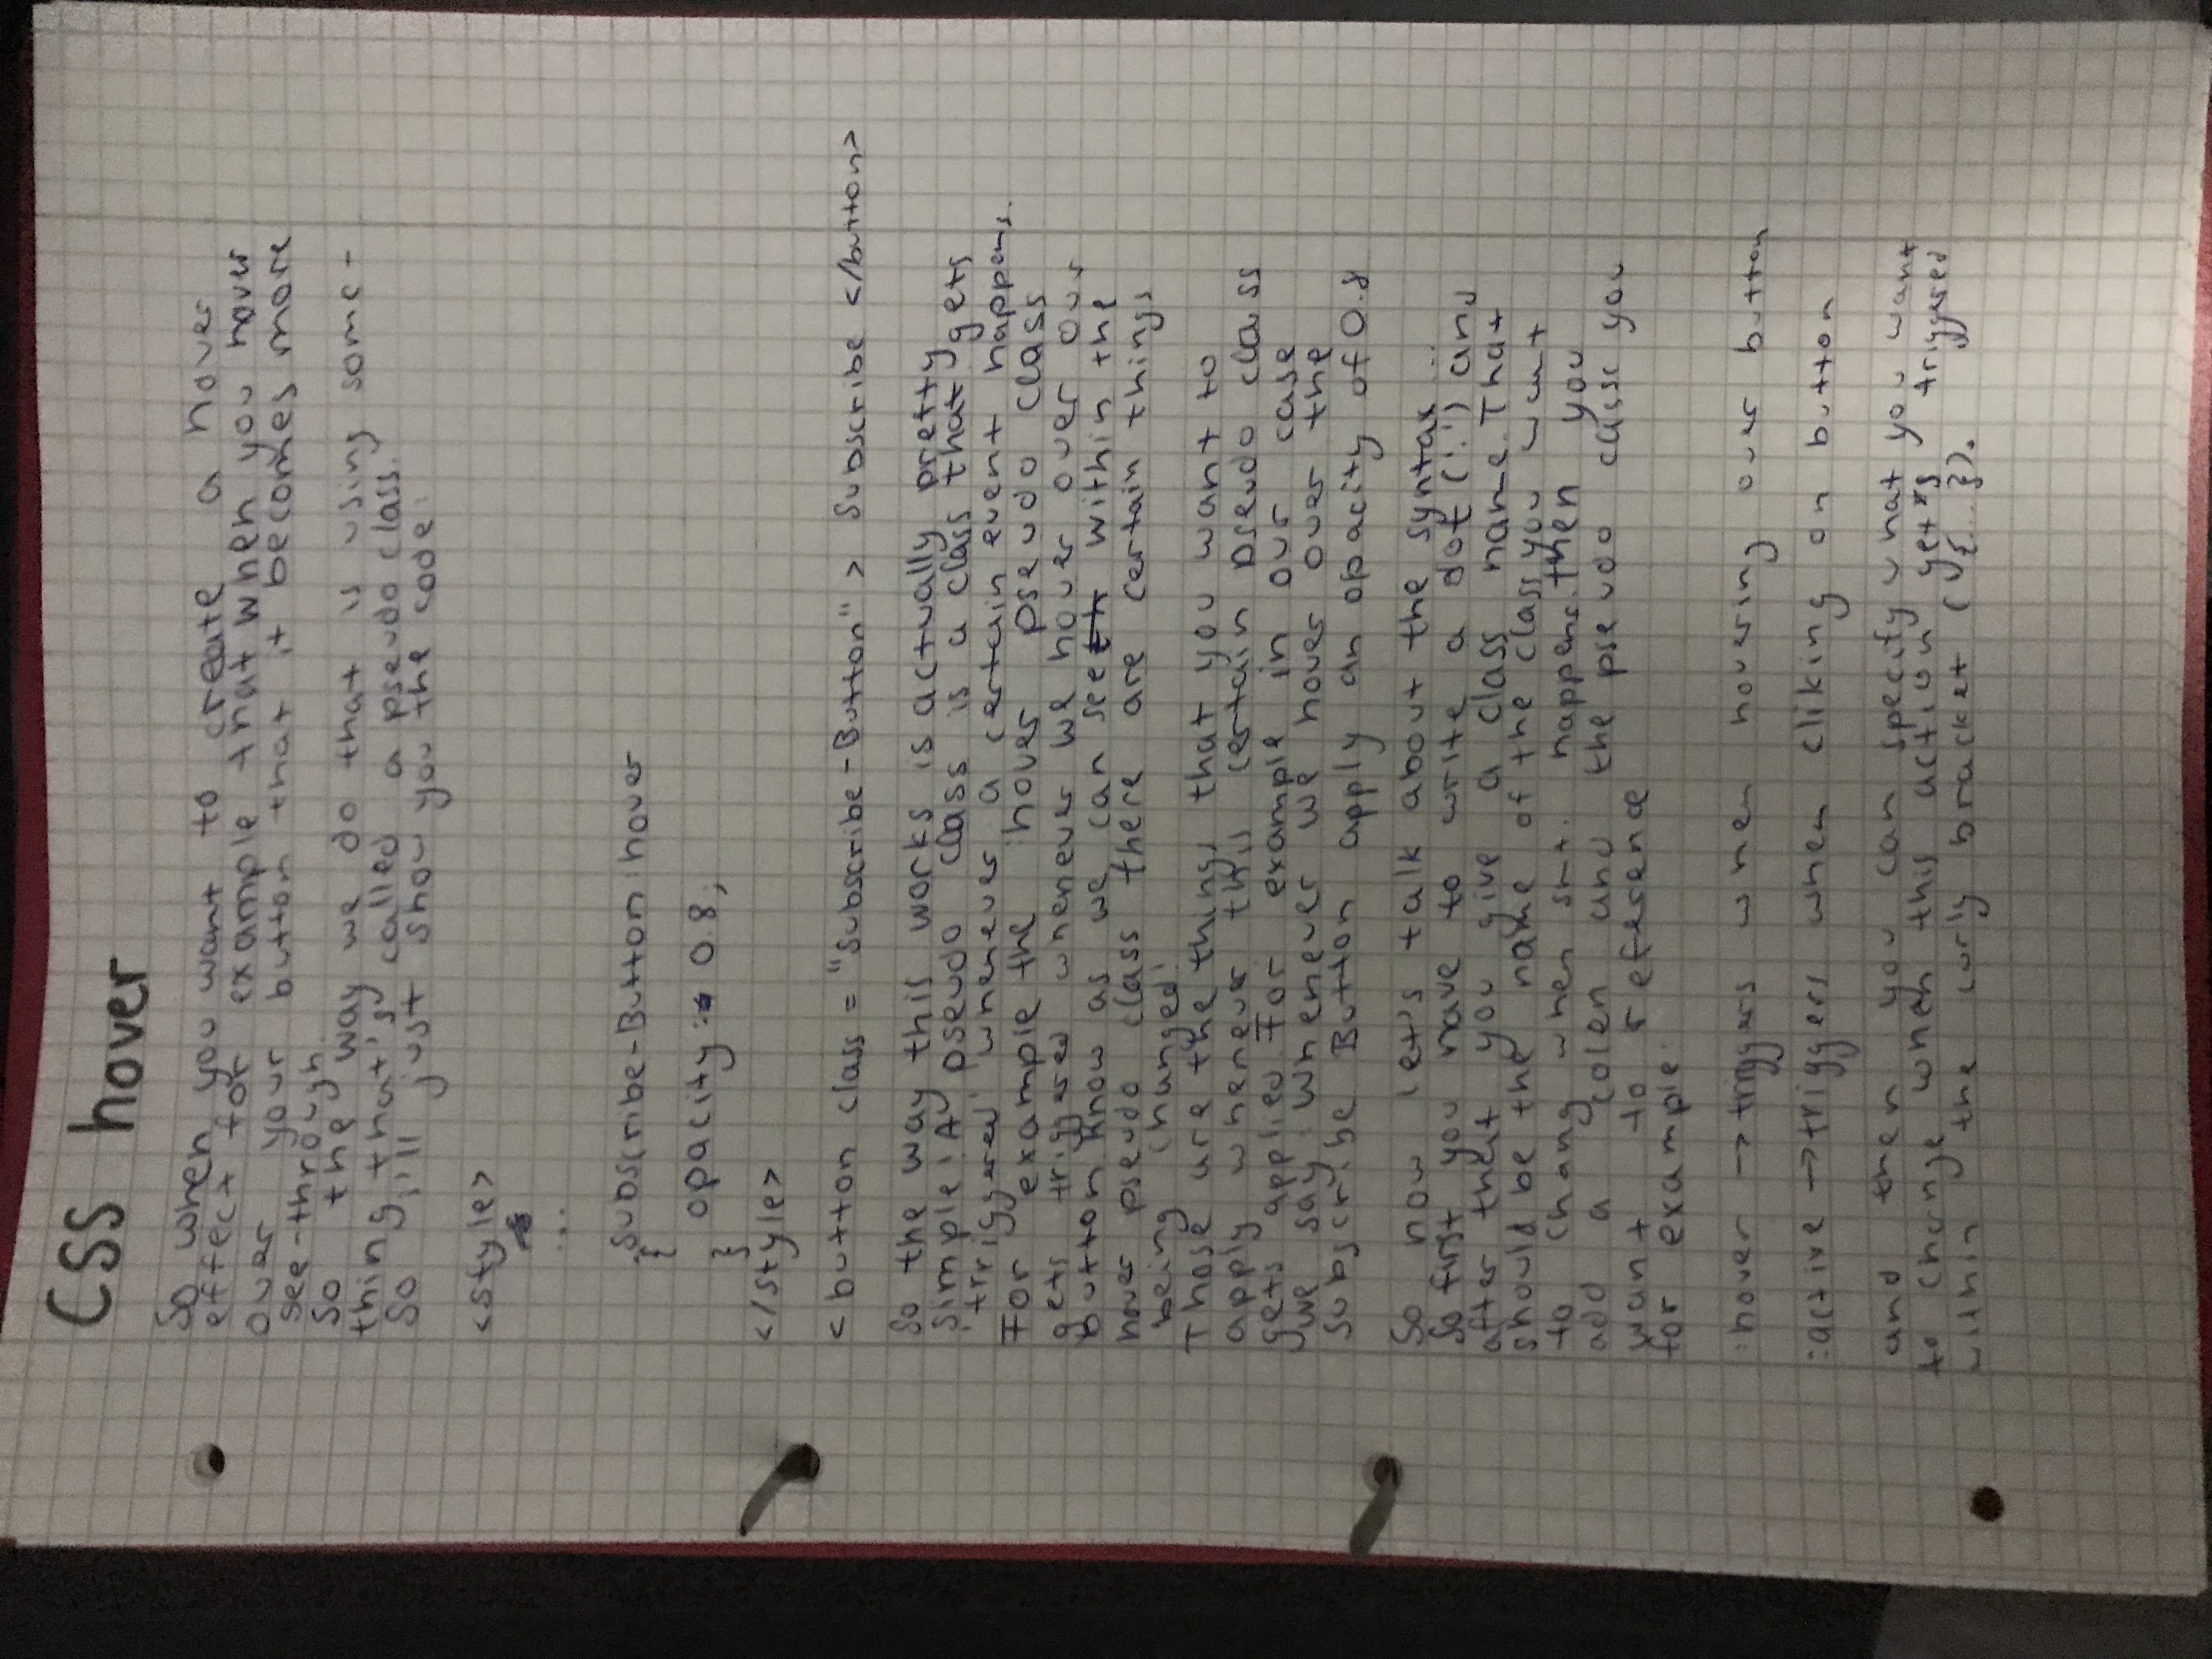 CSS hover
So when you want to create a hover
effect for example that when you hover
over your button that it becomes more
see-through.
So the way we do that is using some-
thing that's called a pseudo class.
So i'll just show you the code:
<style>
...
.Subscribe-Button:hover
{
opacity: 0.8;
}
</style>
<button class = "Subscribe-Button" > Subscribe </button>
So the way this works is actually pretty
simple! A pseudo class is a class that gets
'trriggered' whenever a certain event happens.
For example the :hover pseudo class
gets triggered whenever we hover over our
button. Know as we can see within the
hover pseudo class there are certain things
being changed!
Those are the things that you want to
apply whenever this certain pseudo class
gets applied. For example in our case
we say: Whenever we hover over the
Subscribe Button apply an opacity of 0.8
So now let's talk about the syntax...
So first you have to write a dot ('.') and
after that you give a class name. That
should be the name of the class you want
to chang when smt. happens. then you
add a colen and the pseudo class you
want to reference
for example:
:hover → triggers when hovering over button
:active → triggers when cliking on button
and then you can specify what you want
to change when this action gets triggered
within the curly bracket ( {...}).